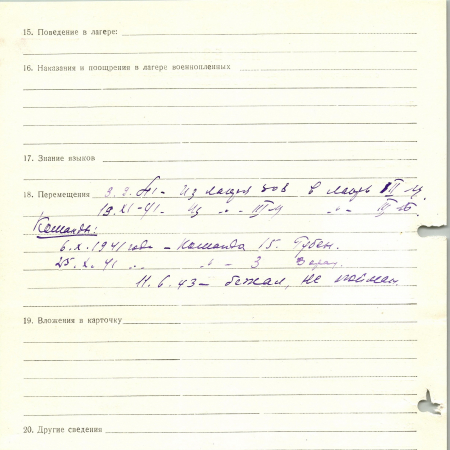 15. Поведение в лагере:
16. Наказания и поощрения в лагере военнопленных
17. Знание языков
18. Перемещения 9.9.41- Из лагеря 308 в лагерь III Ц
19.XI-41. Из -"- III Ц -"- III Б.
Команды:
6.X.1941 года - Команда 15- Губен.
25.X.41 -"- -"- - 3
11.6.43- бежал, не пойман.
19. Вложения в карточку
20. Другие сведения